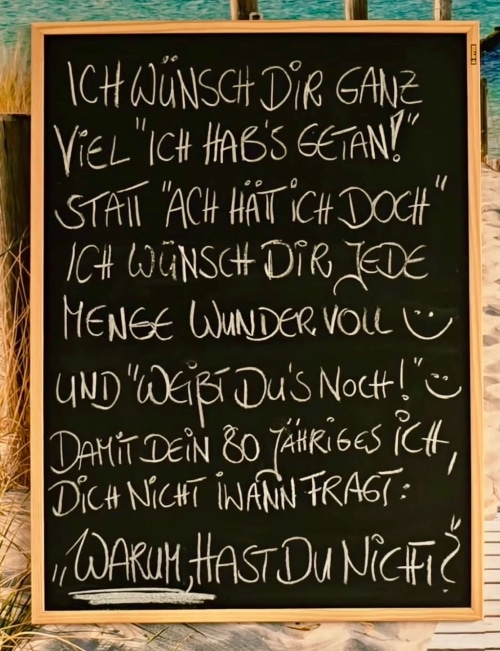 ICH WÜNSCH DIR GANZ
VIEL "ICH HAB'S GETAN!"
STATT "ACH HÄTT ICH DOCH"
ICH WÜNSCH DIR JEDE
MENGE WUNDERVOLL :)
UND "WEIßT DU'S NOCH!" :)
DAMIT DEIN 80 JÄHRIGES ICH,
DICH NICHT IWANN FRAGT:
„WARUM, HAST DU NICHT?"